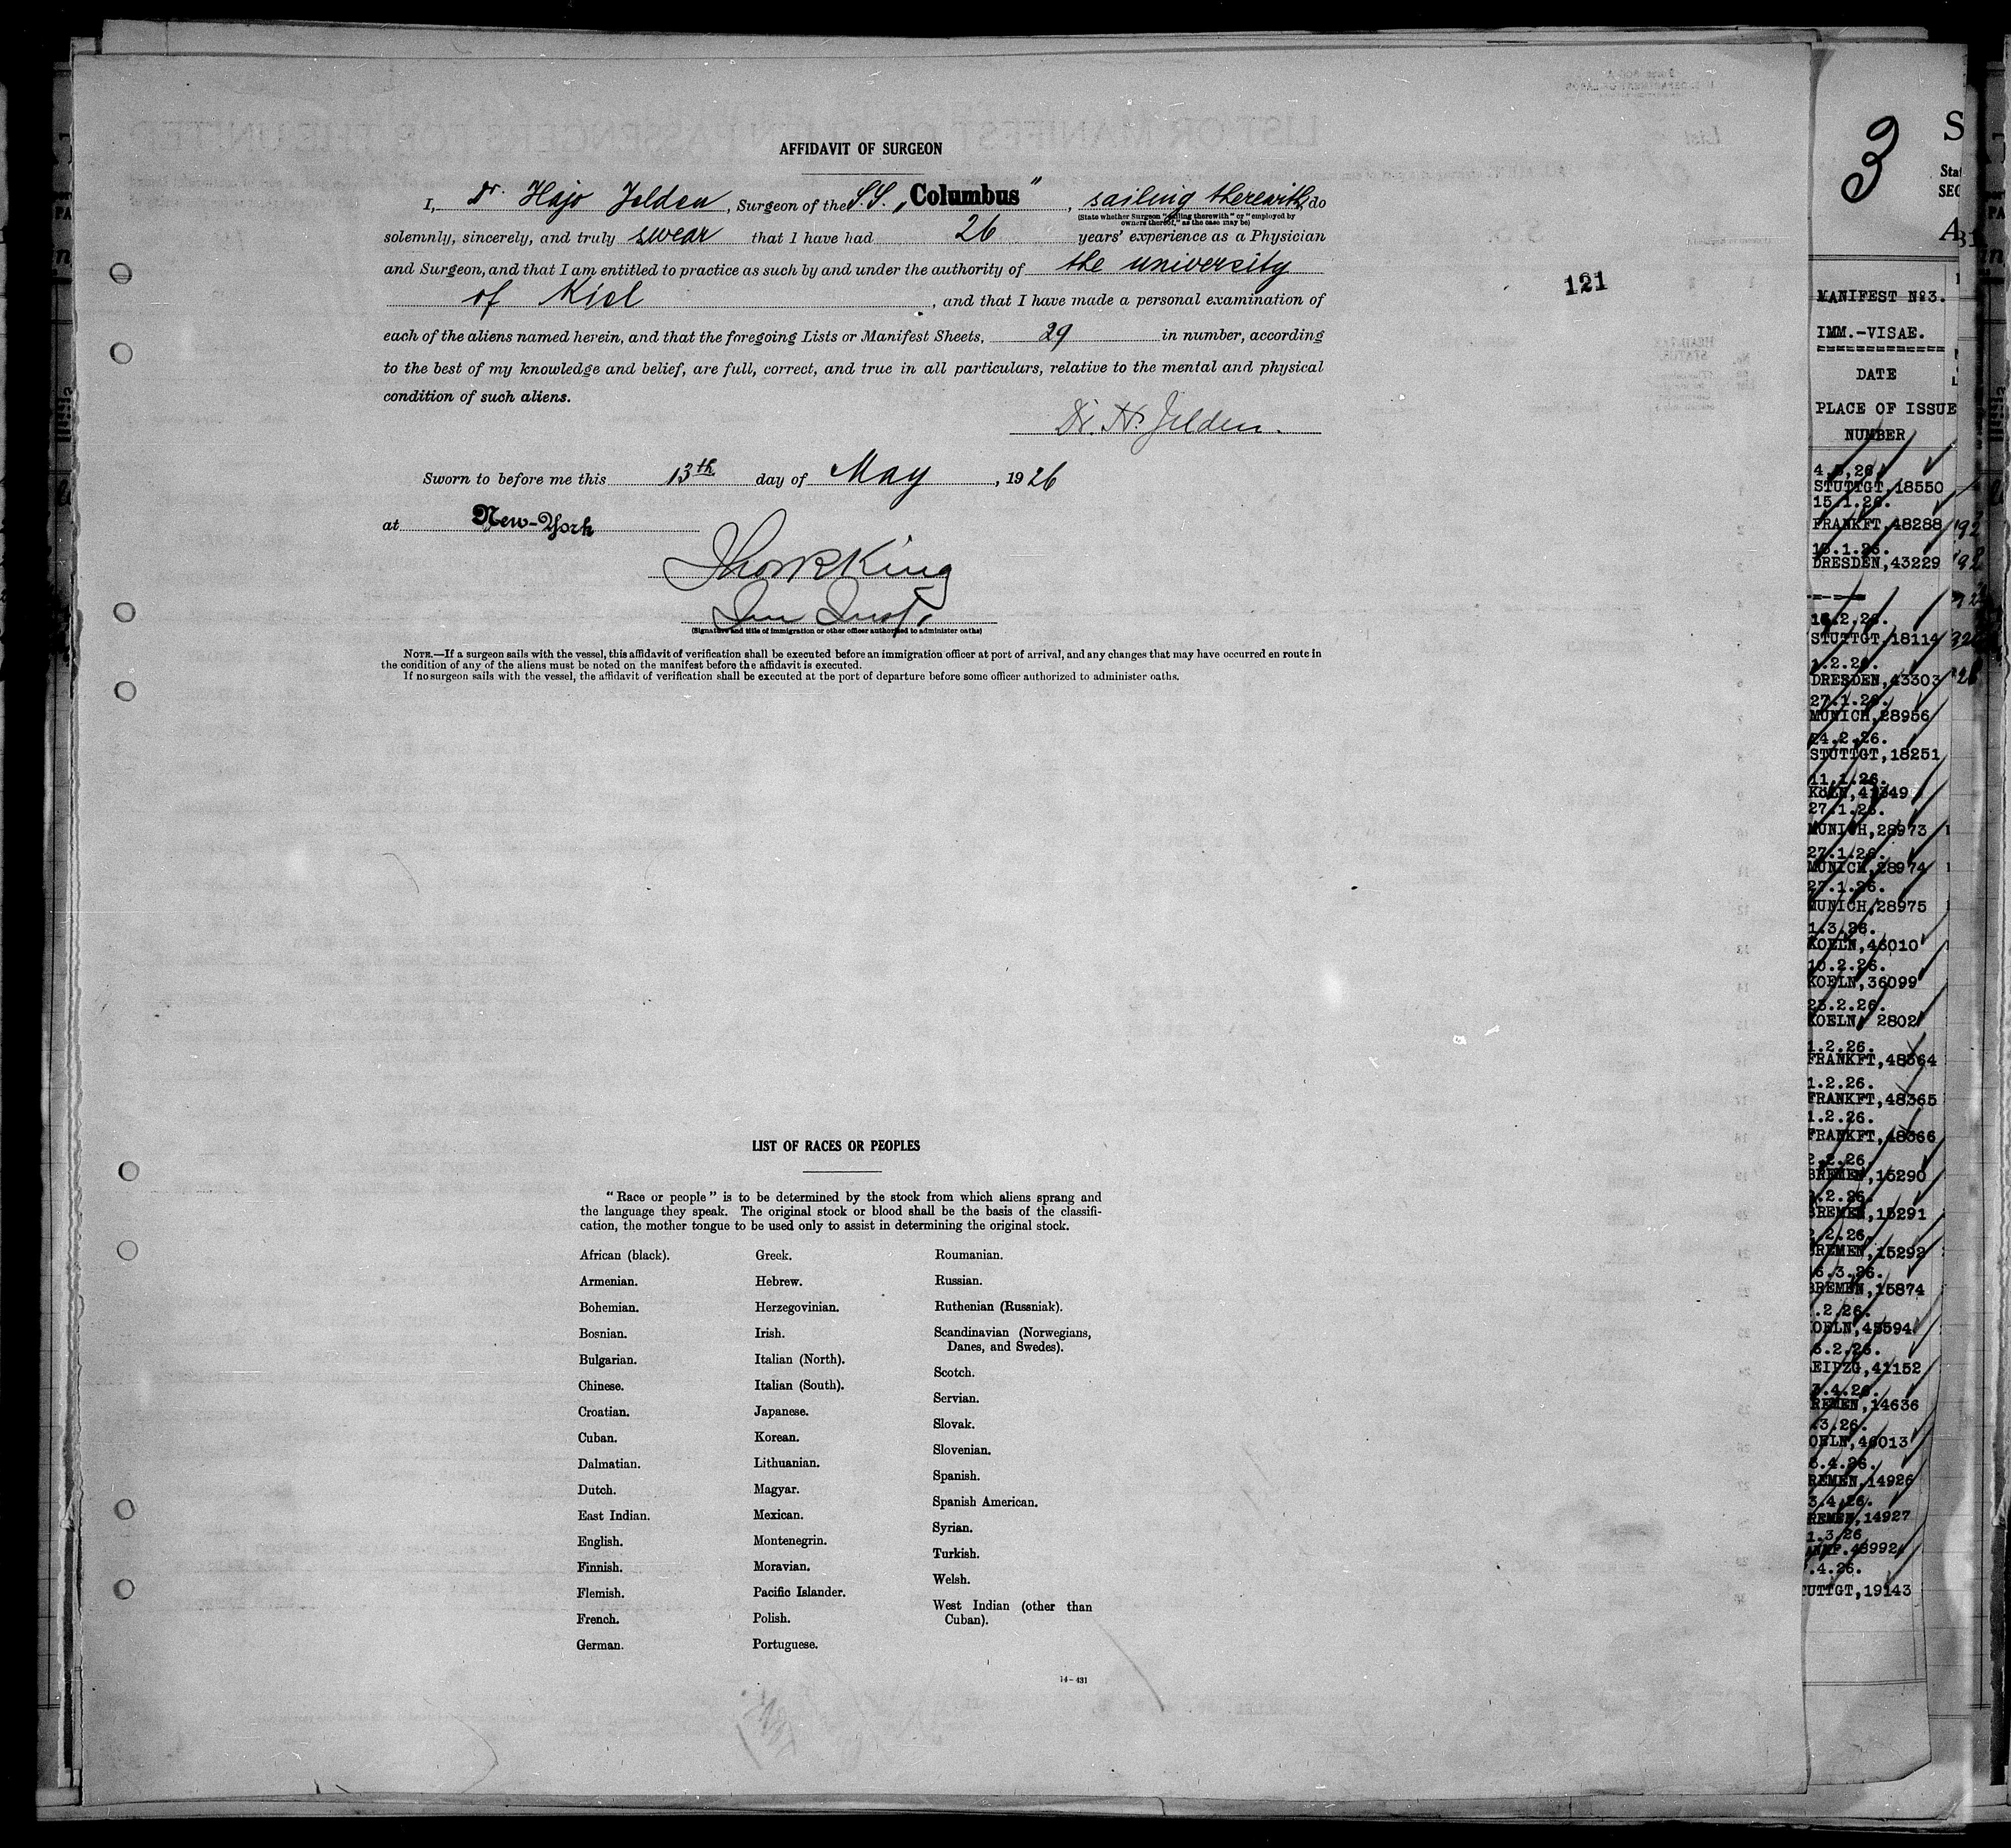 AFFIDAVIT OF SURGEON
I, Dr. Hajo Jelden, Surgeon of the S.S. „Columbus", sailing therewith, do
(State whether Surgeon "sailing therewith" or "employed by
owners thereof," as the case may be)
solemnly, sincerely, and truly swear that I have had 26 years' experience as a Physician
and Surgeon, and that I am entitled to practice as such by and under the authority of the university
of Kiel, and that I have made a personal examination of
each of the aliens named herein, and that the foregoing Lists or Manifest Sheets, 29 in number, according
to the best of my knowledge and belief, are full, correct, and true in all particulars, relative to the mental and physical
condition of such aliens.
Dr. H. Jelden.
Sworn to before me this 13th day of May, 1926
at New-York
King
(Signature and title of immigration or other officer authorized to administer oaths)
NOTE.—If a surgeon sails with the vessel, this affidavit of verification shall be executed before an immigration officer at port of arrival, and any changes that may have occurred en route in
the condition of any of the aliens must be noted on the manifest before the affidavit is executed.
If no surgeon sails with the vessel, the affidavit of verification shall be executed at the port of departure before some officer authorized to administer oaths.
121
LIST OF RACES OR PEOPLES
"Race or people" is to be determined by the stock from which aliens sprang and
the language they speak. The original stock or blood shall be the basis of the classifi-
cation, the mother tongue to be used only to assist in determining the original stock.
African (black).
Armenian.
Bohemian.
Bosnian.
Bulgarian.
Chinese.
Croatian.
Cuban.
Dalmatian.
Dutch.
East Indian.
English.
Finnish.
Flemish.
French.
German.
Greek.
Hebrew.
Herzegovinian.
Irish.
Italian (North).
Italian (South).
Japanese.
Korean.
Lithuanian.
Magyar.
Mexican.
Montenegrin.
Moravian.
Pacific Islander.
Polish.
Portuguese.
Roumanian.
Russian.
Ruthenian (Russniak).
Scandinavian (Norwegians,
Danes, and Swedes).
Scotch.
Servian.
Slovak.
Slovenian.
Spanish.
Spanish American.
Syrian.
Turkish.
Welsh.
West Indian (other than
Cuban).
14-431
3
MANIFEST No3.
IMM.-VISAE.
DATE
PLACE OF ISSUE
NUMBER
STUTTGT,18550
15.1.26.
FRANKFT,48288
DRESDEN,43229
STUTTGT,18114
DRESDEN,43303
27.1.26.
MUNICH,28956
24.2.26.
STUTTGT,18251
11.1.26.
27.1.26.
MUNICH,28973
27.1.26.
MUNICH,28974
27.1.26.
MUNICH,28975
1.3.26.
KOELN,46010
10.2.26.
KOELN,36099
23.2.26.
KOELN, 2802
1.2.26.
FRANKFT,48364
1.2.26.
FRANKFT,48365
1.2.26.
FRANKFT,48366
2.2.26.
BREMEN,15290
BREMEN,15291
2.2.26.
BREMEN,15292
6.3.26.
BREMEN,15874
.2.26.
OELN,45594
6.2.26.
EIPZG,41152
REMEN,14636
.3.26.
OELN,46013
REMEN,14926
3.4.26.
REMEN,14927
1.3.26
.4.26.
TUTTGT,19143